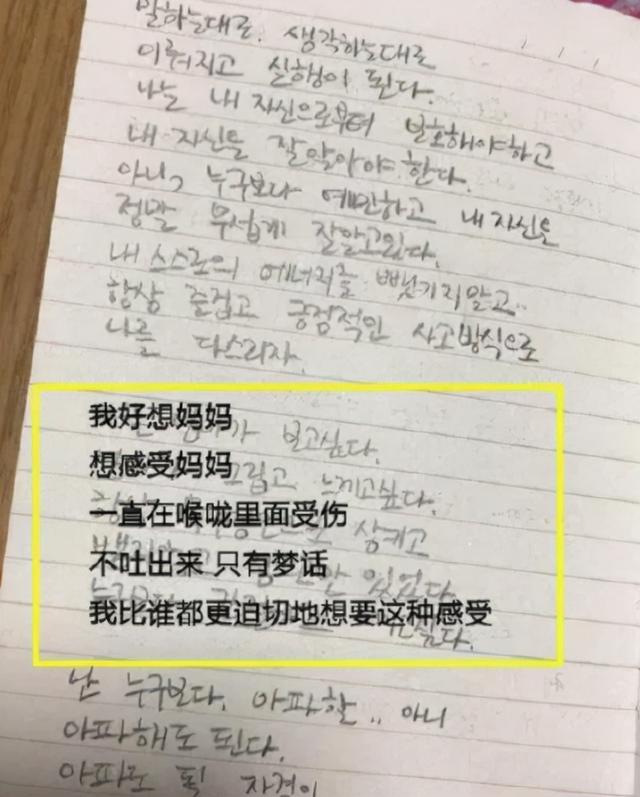 말하는대로. 생각하는대로
이뤄지고 실행이 된다.
나는 내 자신으로부터 보호해야하고
내 자신을 잘알아야 한다.
아니, 누구보다 예민하고 내 자신을
정말 무섭게 잘알고있다.
내 스스로의 에너지를 뺏기지말고..
항상 즐겁고 긍정적인 사고방식으로
나를 다스리자.
가 보고싶다.
그립고 느끼고싶다.
삼키고
있었다.
我好想妈妈
想感受妈妈
一直在喉咙里面受伤
不吐出来 只有梦话
我比谁都更迫切地想要这种感受
난 누구보다. 아파할.. 아니
아파해도 된다.
아파도 될 자격이